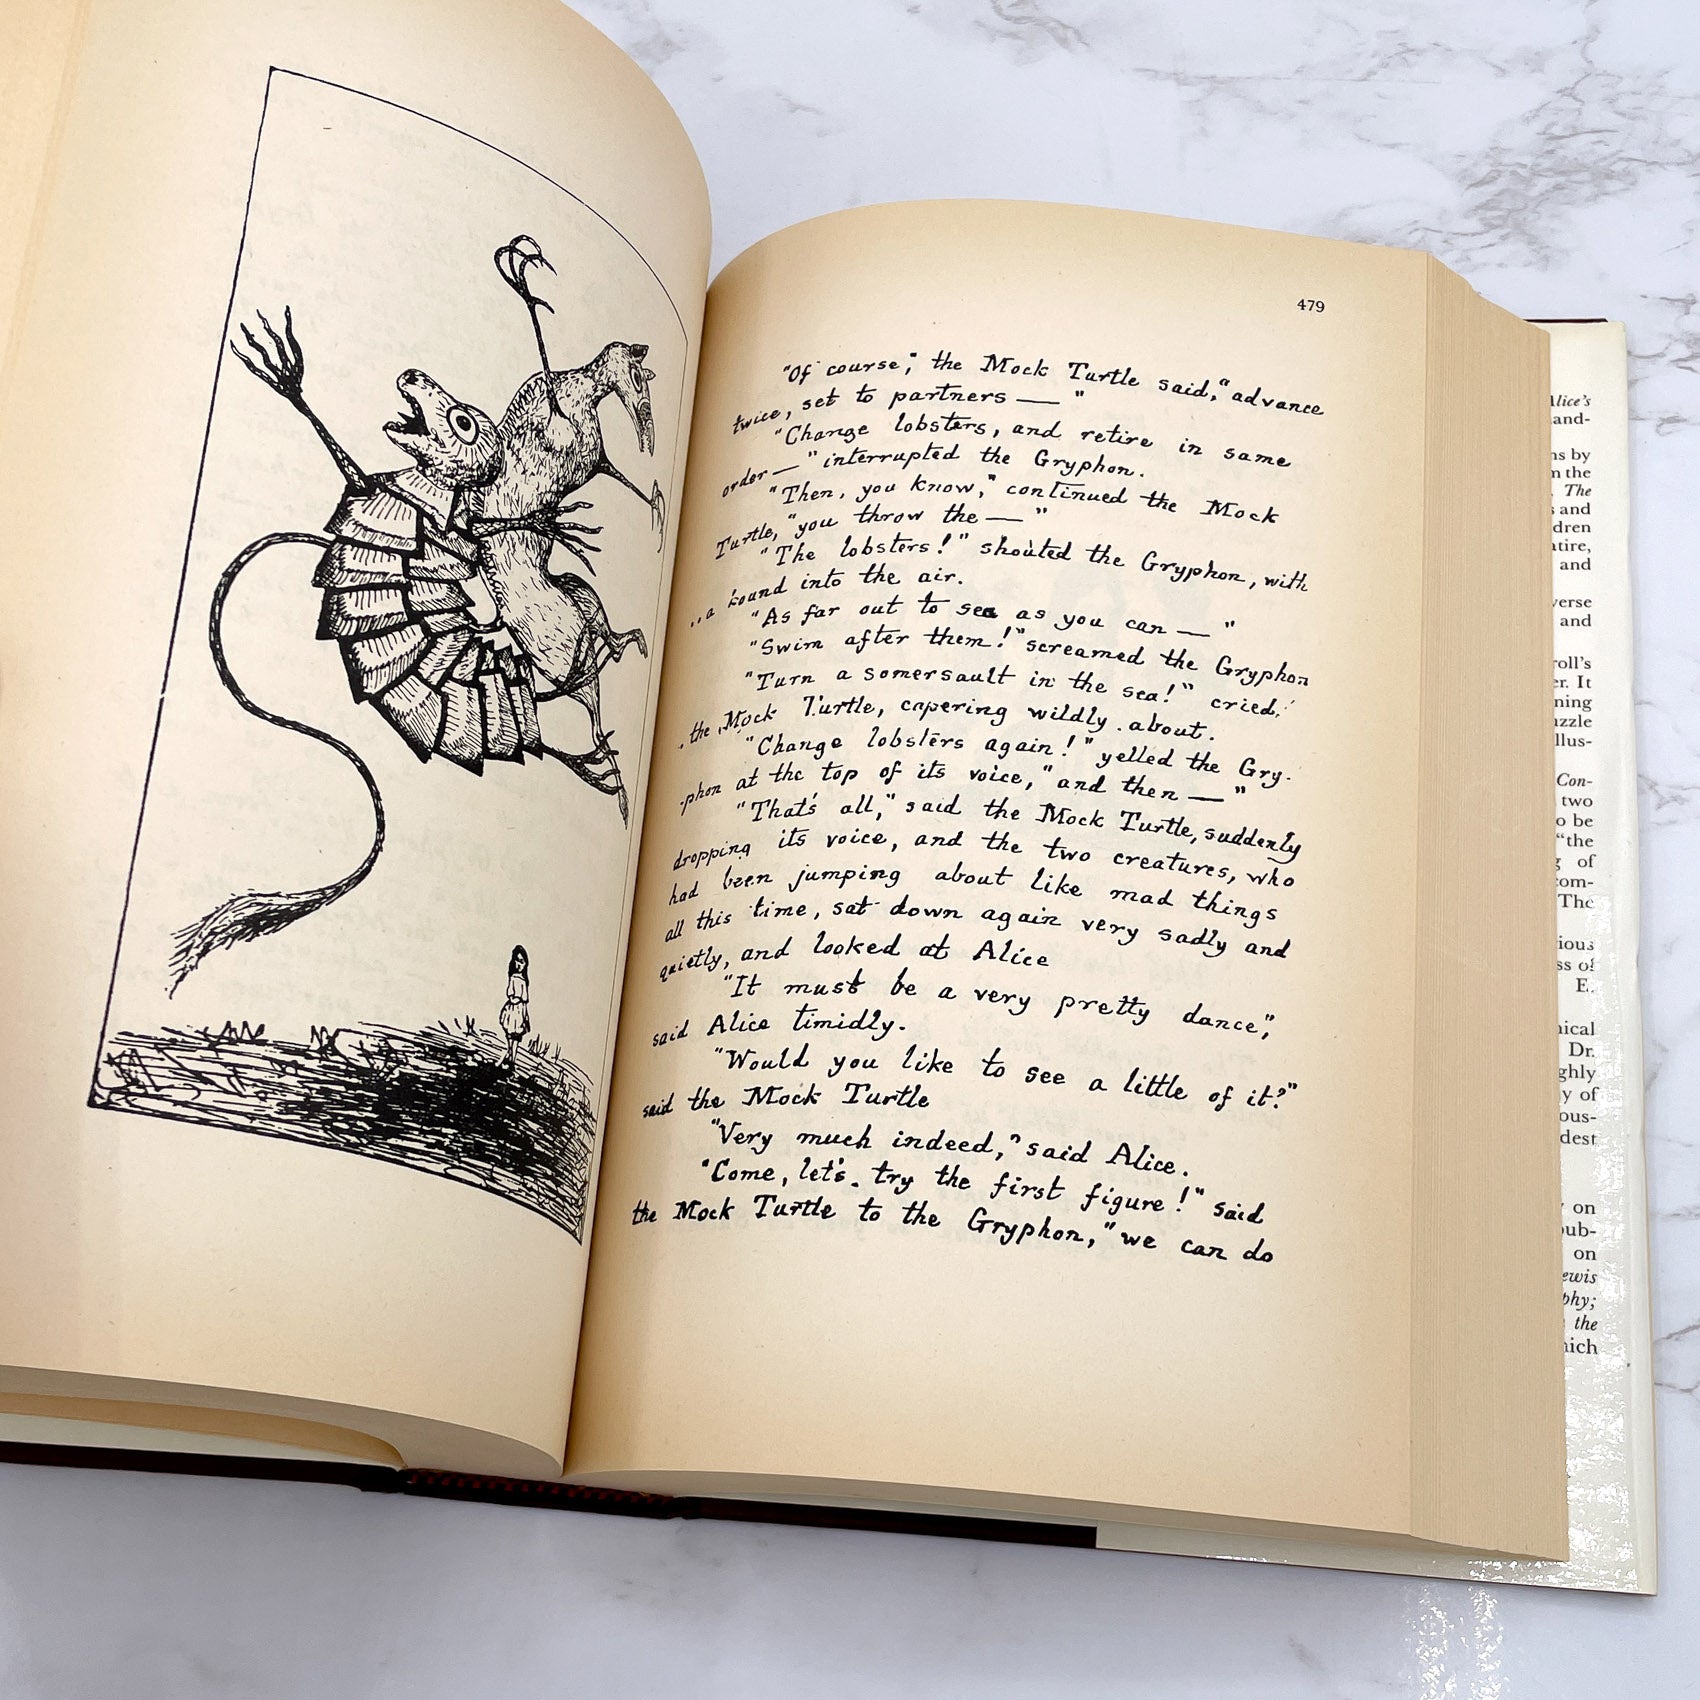 479
"Of course," the Mock Turtle said, "advance
twice, set to partners — "
"Change lobsters, and retire in same
order — " interrupted the Gryphon.
"Then, you know," continued the Mock
Turtle, "you throw the — "
"The lobsters!" shouted the Gryphon, with
a bound into the air.
"As far out to sea as you can — "
"Swim after them!" screamed the Gryphon
"Turn a somersault in the sea!" cried
the Mock Turtle, capering wildly about.
"Change lobsters again!" yelled the Gry-
-phon at the top of its voice, "and then — "
"That's all," said the Mock Turtle, suddenly
dropping its voice, and the two creatures, who
had been jumping about like mad things
all this time, sat down again very sadly and
quietly, and looked at Alice
"It must be a very pretty dance,"
said Alice timidly.
"Would you like to see a little of it?"
said the Mock Turtle
"Very much indeed," said Alice.
"Come, let's try the first figure!" said
the Mock Turtle to the Gryphon, "we can do
Alice's
and-
ns by
n the
The
s and
dren
tire,
and
verse
and
roll's
er. It
ning
uzzle
llus-
Con-
two
o be
"the
g of
com-
The
ious
ss of
E.
nical
Dr.
ghly
y of
ous-
dest
on
pub-
on
ewis
phy;
the
hich